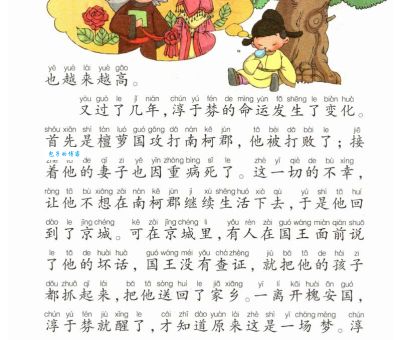 yě yuè lái yuè gāo
也越来越高。
yòu guò le jǐ nián chún yú fén de mìng yùn fā shēng le biàn huà
又过了几年,淳于棼的命运发生了变化。
shǒu xiān shì tán luó guó gōng dǎ nán kē jùn tā bèi dǎ bài le jiē
首先是檀萝国攻打南柯郡,他被打败了;接
包子的博客
zhe tā de qī zi yě yīn zhòng bìng sǐ le zhè yí qiè de bú xìng
着他的妻子也因重病死了。这一切的不幸,
ràng tā bù xiǎng zài nán kē jùn jì xù shēng huó xià qù yú shì tā huí
让他不想在南柯郡继续生活下去,于是他回
dào le jīng chéng kě zài jīng chéng lǐ yǒu rén zài guó wáng miàn qián shuō
到了京城。可在京城里,有人在国王面前说
le tā de huài huà guó wáng méi yǒu chá zhèng jiù bǎ tā de hái zi
了他的坏话,国王没有查证,就把他的孩子
dōu zhuā qǐ lái bǎ tā sòng huí le jiā xiāng yì lí kāi huái ān guó
都抓起来,把他送回了家乡。一离开槐安国,
chún yú fén jiù xǐng le cái zhī dào yuán lái zhè shì yì chǎng mèng chún
淳于棼就醒了,才知道原来这是一场梦。淳